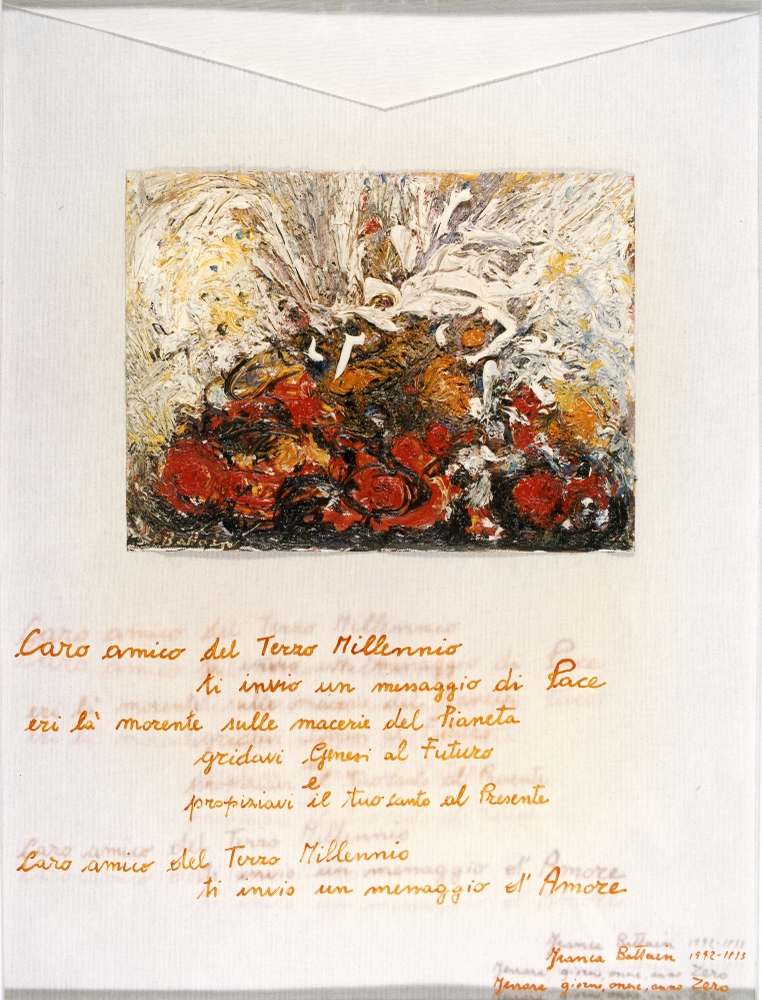 Caro amico del Terzo Millennio
ti invio un messaggio di Pace
eri là morente sulle macerie del Pianeta
gridavi Genesi al Futuro
e
propiziavi il tuo canto al Presente
Caro amico del Terzo Millennio
ti invio un messaggio d'Amore
Franca
giorni, anno Zero